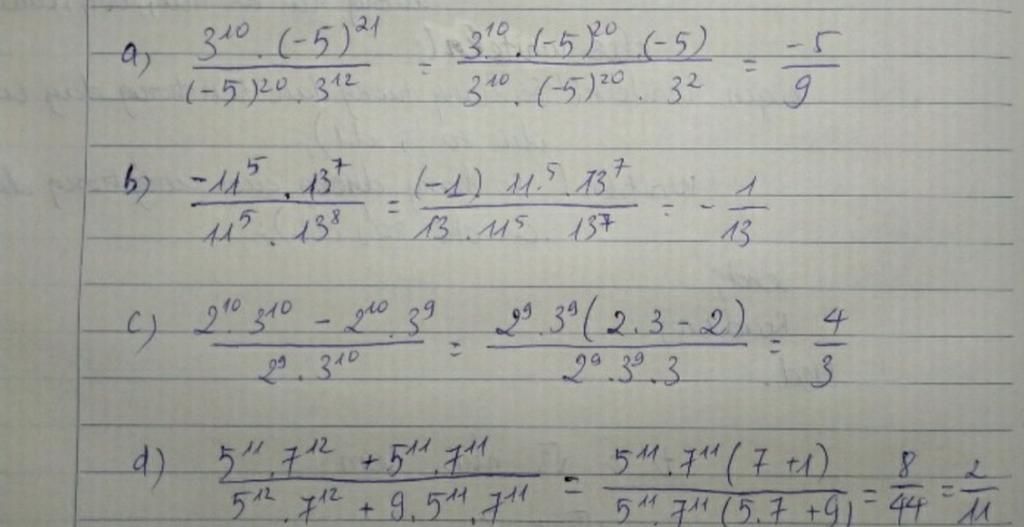 a) \frac{3^{10} \cdot (-5)^{21}}{(-5)^{20} \cdot 3^{12}} = \frac{3^{10} \cdot (-5)^{20} \cdot (-5)}{3^{10} \cdot (-5)^{20} \cdot 3^{2}} = \frac{-5}{9}
b) \frac{-11^{5} \cdot 13^{7}}{11^{5} \cdot 13^{8}} = \frac{(-1) \cdot 11^{5} \cdot 13^{7}}{13 \cdot 11^{5} \cdot 13^{7}} = -\frac{1}{13}
c) \frac{2^{10} \cdot 3^{10} - 2^{10} \cdot 3^{9}}{2^{9} \cdot 3^{10}} = \frac{2^{9} \cdot 3^{9} (2 \cdot 3 - 2)}{2^{9} \cdot 3^{9} \cdot 3} = \frac{4}{3}
d) \frac{5^{11} \cdot 7^{12} + 5^{11} \cdot 7^{11}}{5^{12} \cdot 7^{12} + 9 \cdot 5^{11} \cdot 7^{11}} = \frac{5^{11} \cdot 7^{11} (7 + 1)}{5^{11} \cdot 7^{11} (5 \cdot 7 + 9)} = \frac{8}{44} = \frac{2}{11}